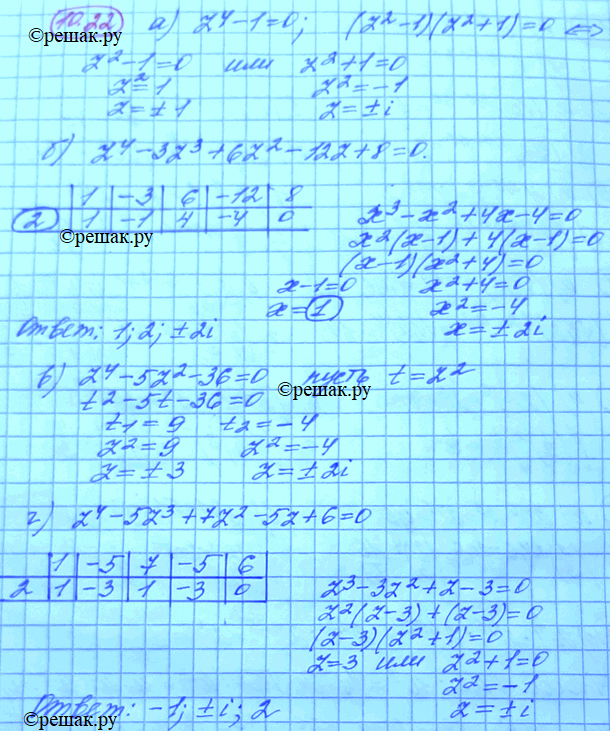 10.22 а) z⁴-1=0; (z²-1)(z²+1)=0 ⇔
©решак.ру
z²-1=0 или z²+1=0
z²=1 z²=-1
z=±1 z=±i
б) z⁴-3z³+6z²-12z+8=0.
1 -3 6 -12 8
2 1 -1 4 -4 0
©решак.ру
x³-x²+4x-4=0
x²(x-1)+4(x-1)=0
(x-1)(x²+4)=0
x-1=0 x²+4=0
x=1 x²=-4
x=±2i
Ответ: 1; 2; ±2i
в) z⁴-5z²-36=0 пусть t=z²
©решак.ру
t²-5t-36=0
t1=9 t2=-4
z²=9 z²=-4
z=±3 z=±2i
г) z⁴-5z³+7z²-5z+6=0
1 -5 7 -5 6
2 1 -3 1 -3 0
z³-3z²+z-3=0
z²(z-3)+(z-3)=0
(z-3)(z²+1)=0
z=3 или z²+1=0
z²=-1
z=±i
Ответ: -1; ±i; 2
©решак.ру